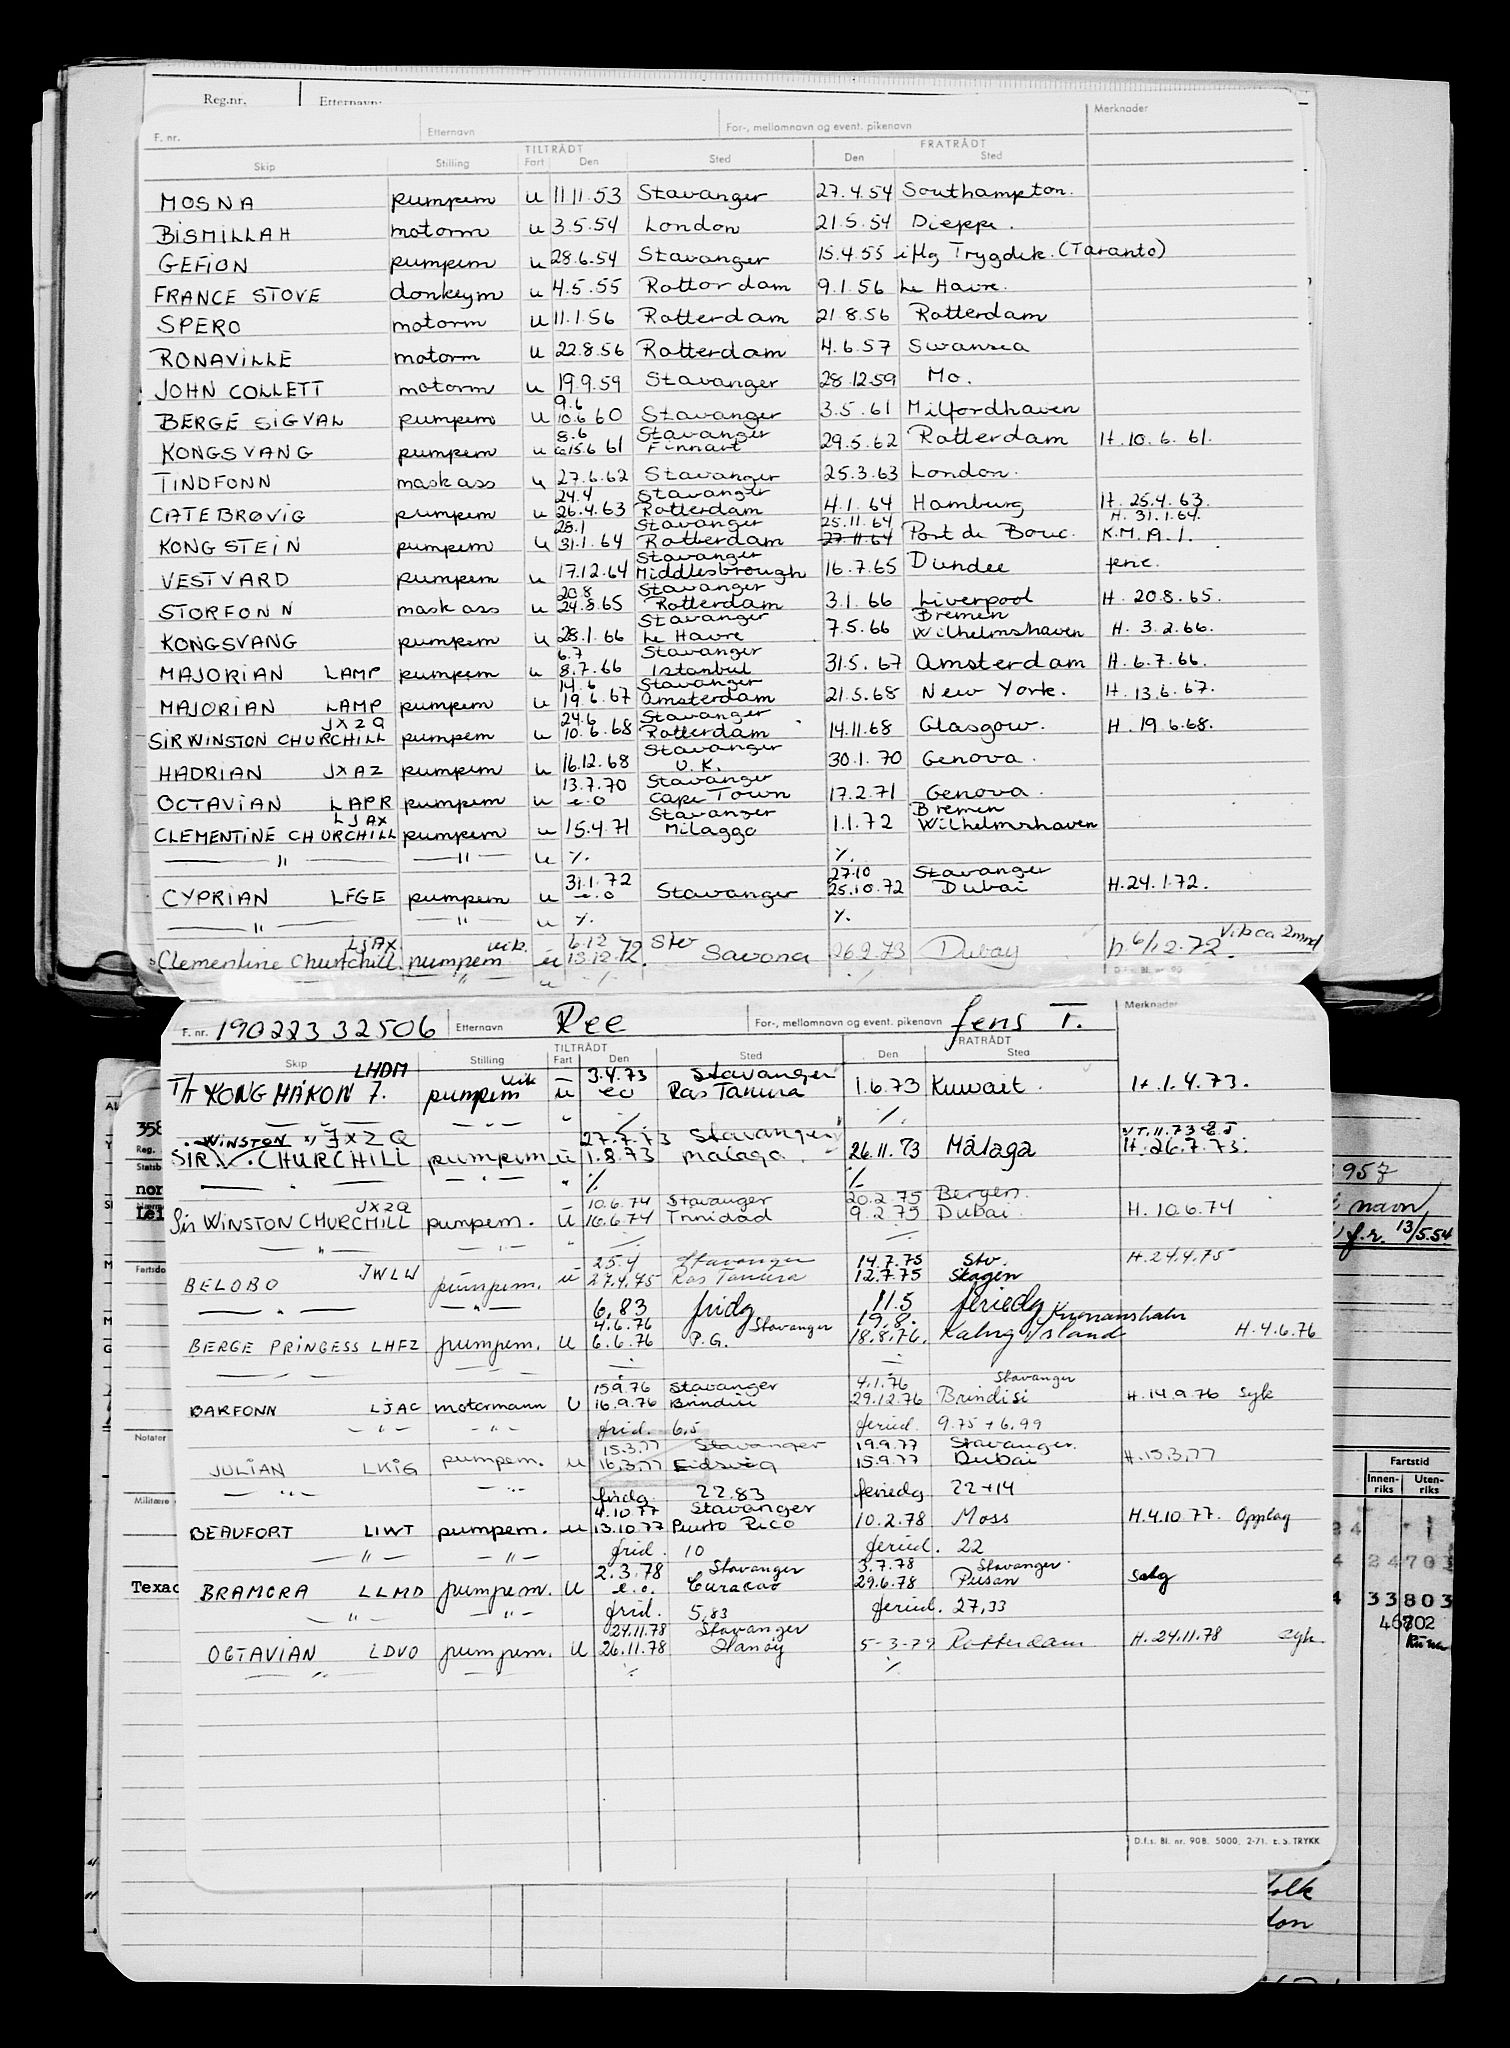 Reg.nr. Etternavn:
F. nr. Etternavn For-, mellomnavn og event. pikenavn Merknader
TILTRÅDT FRATRÅDT
Skip Stilling Fart Den Sted Den Sted
MOSNA pumpem u 11.11.53 Stavanger 27.4.54 Southampton.
BISMILLAH motorm u 3.5.54 London 21.5.54 Dieppe.
GEFION pumpem u 28.6.54 Stavanger 15.4.55 iflg Trygdek. (Taranto)
FRANCE STOVE donkeym u 4.5.55 Rotterdam 9.1.56 Le Havre.
SPERO motorm u 11.1.56 Rotterdam 21.8.56 Rotterdam
RONAVILLE motorm u 22.8.56 Rotterdam 4.6.57 Swansea
JOHN COLLETT motorm u 19.9.59 Stavanger 28.12.59 Mo.
9.6
BERGE SIGVAL pumpem u 10.6 60 Stavanger 3.5.61 Milfordhaven
8.6 Stavanger
KONGSVANG pumpem u ca 15.6 61 Finnart 29.5.62 Rotterdam H. 10.6.61.
TINDFONN mask ass u 27.6.62 Stavanger 25.3.63 London.
24.4 Stavanger
CATE BRØVIG pumpem u 26.4.63 Rotterdam 4.1.64 Hamburg H. 25.4.63.
28.1 Stavanger 25.11.64 H. 31.1.64.
KONGSTEIN pumpem u 31.1.64 Rotterdam 27.11.64 Port de Bouc. K.M. 19.1.
Stavanger
VESTVARD pumpem u 17.12.64 Middlesbrough 16.7.65 Dundee ferie.
20.8 Stavanger
STORFONN mask ass u 24.8.65 Rotterdam 3.1.66 Liverpool H. 20.8.65.
Stavanger Bremen
KONGSVANG pumpem u 28.1.66 Le Havre 7.5.66 Wilhelmshaven H. 3.2.66.
6.7 Stavanger
MAJORIAN LAMP pumpem u 8.7.66 Istanbul 31.5.67 Amsterdam H. 6.7.66.
14.6 Stavanger
MAJORIAN LAMP pumpem u 19.6.67 Amsterdam 21.5.68 New York. H. 13.6.67.
JXZQ 24.6 Stavanger
SIR WINSTON CHURCHILL pumpem u 10.6.68 Rotterdam 14.11.68 Glasgow. H. 19.6.68.
Stavanger
HADRIAN JXAZ pumpem u 16.12.68 U.K. 30.1.70 Genova.
13.7.70 Stavanger
OCTAVIAN LAPR pumpem u e.o Cape Town 17.2.71 Genova.
LJAX Stavanger Bremen
CLEMENTINE CHURCHILL pumpem u 15.4.71 Milaggo 1.1.72 Wilhelmshaven
— " — — " — u %. %.
31.1.72 27.10 Stavanger
CYPRIAN LFGE pumpem u e.o Stavanger 25.10.72 Dubai H. 24.1.72.
— " — — " — u %. %.
LJAX. vik. 6.12 Stv Vik ca 2mnd
Clementine Churchill. pumpem u 13.12.72. Savona 26.2.73 Dubay h. 6/12.72.
" u %
D.f.s. Bl. nr. 90
F. nr. 190223 32506 Etternavn Ree For-, mellomnavn og event. pikenavn Jens T. Merknader
TILTRÅDT FRATRÅDT
Skip Stilling Fart Den Sted Den Sted
LHDM vik 3.4.73 Stavanger
T/T KONG HAKON 7. pumpem u eo Ras Tanura 1.6.73 Kuwait. H. 1.4.73.
— " — — " — % %.
WINSTON JXZQ 27.7.73 Stavanger
SIR CHURCHILL pumpem u 1.8.73 Malaga. 26.11.73 Málaga H. 26.7.73.
— " — — " — " % %
JXZQ 10.6.74 Stavanger 20.2.75 Bergen.
Sir WINSTON CHURCHILL pumpem. u 16.6.74 Trinidad 9.2.75 Dubai. H. 10.6.74
— " — — " — " % %
25.4 Stavanger 14.7.75 Stv. H. 24.4.75
BELOBO JWLW pumpem. u 27.4.75 Ras Tanura 12.7.75 Skagen
— " — — " — 6,83 fridg 11.5 feriedg
4.6.76 Stavanger 19.8.
BERGE PRINCESS LHFZ pumpem. u 6.6.76 P.G. 18.8.76. Kharg Island H. 4.6.76
— " — — " — % %
15.9.76 Stavanger 4.1.76 Stavanger
BARFONN LJAC motormann U 16.9.76 Brindisi 29.12.76 Brindisi H. 14.9.76 syk
— " — — " — frid. 6,5 feried. 9.75 + 6,99
15.3.77 Stavanger 19.9.77 Stavanger.
JULIAN LKIG pumpem. u 16.3.77 Eidsvig 15.9.77 Dubai H. 15.3.77
— " — — " — fridg. 22.83 feriedg 22+14
4.10.77 Stavanger
BEAUFORT LIWT pumpem. u 13.10.77 Puerto Rico 10.2.78 Moss H. 4.10.77. Opplag
— " — — " — frid. 10 feried. 22
2.3.78 Stavanger 3.7.78 Stavanger.
BRAMORA LLMD pumpem. U e.o. Curacao 29.6.78 Pusan Salg
— " — — " — frid. 5,83 feried. 27,33
24.11.78 Stavanger
OCTAVIAN LDVO pumpem. U 26.11.78 Hanøy 5-3-79 Rotterdam. H. 24.11.78 syk.
— " — " — % %
D.f.s. Bl. nr. 90B. 5000. 2-71. E. S. TRYKK
358
Reg.
Statsb
nor
Lei
Fartsdo
Notater
Militære
Texac
957
navn
f.r. 13/5.54
Fartstid
Innen-riks Uten-riks
24703
33803